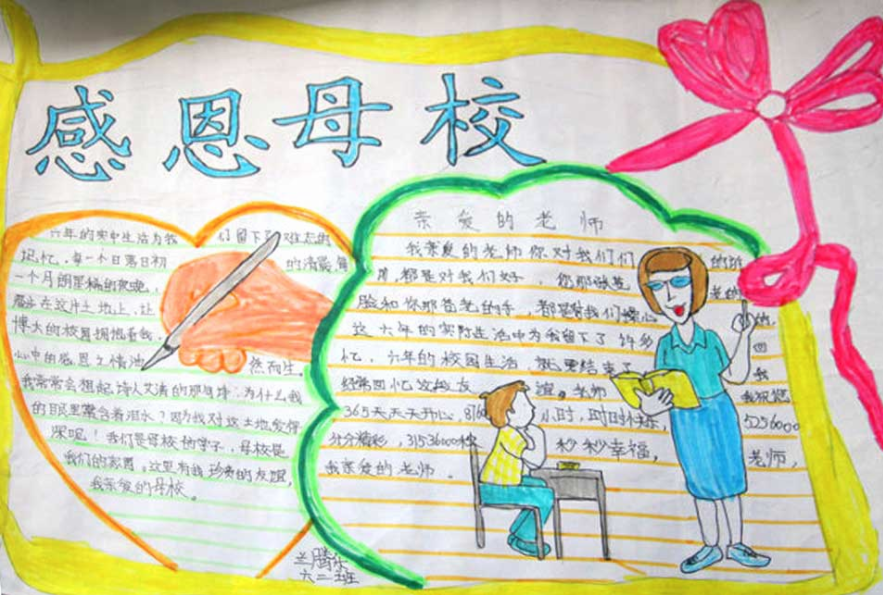 感恩母校
六年的实中生活为我们留下了难忘的
记忆,每一个日落日初的清晨,每
一个月朗星稀的夜晚,
脚步在这片土地上,让
博大的校园拥抱着我,
心中的感恩之情油然而生。
我常常会想起诗人艾青的那句诗:为什么我
的眼里常含着泪水?因为我对这土地爱得
深呢!我们是母校的学子,母校是
我们的家园。这里有我珍贵的友谊,
我亲爱的母校。
亲爱的老师
我亲爱的老师你对我们的
都是对我们好,您那
脸和你那苍老的手,都是替我们操心的,
这六年的实中生活中为我留下了许多回
忆,六年的校园生活就要结束了,我
经常回忆这段友谊。老师我祝您
365天天天开心,8760小时,时时快乐,5256000
分分精彩,31536000秒秒秒幸福,老师,
我亲爱的老师。
兰腾乐
六二班